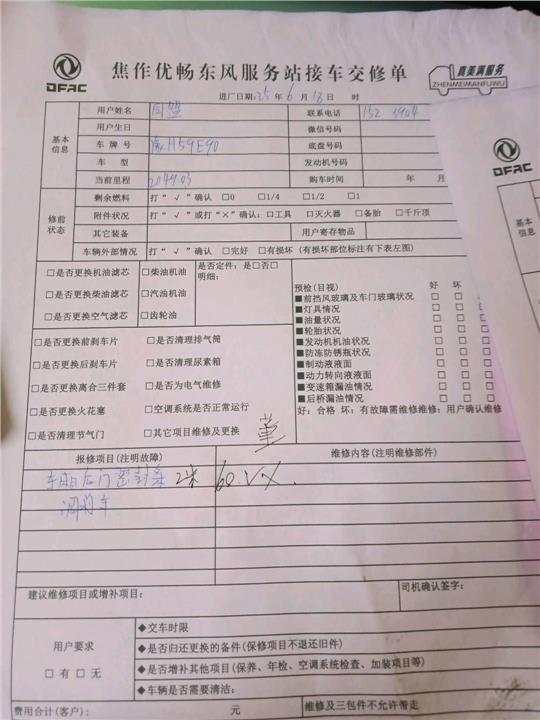 DFAC
焦作优畅东风服务站接车交修单
真美满服务
ZHENMEIMANFUWU
进厂日期:25 年 6 月 18 日 时
基本信息
用户姓名
联系电话 152 3904
用户生日
微信号码
车 牌 号 豫H59E90
底盘号码
车 型
发动机号码
当前里程 204903
购车时间 年 月
修前状态
剩余燃料 打“√”确认 □0 □1/4 □1/2 □1
附件状况 打“√”或打“×”确认:□工具 □灭火器 □备胎 □千斤顶
其它装备
用户寄存物品
车辆外部情况 打“√”确认 □完好 □有损坏 (有损坏部位标注有下表左图)
□是否更换机油滤芯 □柴油机油
□是否更换柴油滤芯 □汽油机油
□是否更换空气滤芯 □齿轮油
是否定件: 是□否□
明细:
□是否更换前刹车片 □是否清理排气筒
□是否更换后刹车片 □是否清理尿素箱
□是否更换离合三件套 □是否为电气维修
□是否更换火花塞 □空调系统是否正常运行
□是否清理节气门 □其它项目维修及更换
预检(目视) 好 坏
■前挡风玻璃及车门玻璃状况 □ □
■灯具情况 □ □
■油量状况 □ □
■轮胎状况 □ □
■发动机机油状况 □ □
■防冻防锈瓶状况 □ □
■制动液液面 □ □
■动力转向液液面 □ □
■变速箱漏油情况 □ □
■后桥漏油情况 □ □
好:合格 坏:有故障需维修维修:用户确认维修
报修项目(注明故障) 维修内容(注明维修部件)
后门密封条 2米 60.
调刹车
建议维修项目或增补项目:
司机确认签字:
用户要求
□ 有 □ 无
◆交车时限
◆是否归还更换的备件(保修项目不退还旧件)
◆是否增补其他项目(保养、年检、空调系统检查、加装项目等)
◆车辆是否需要清洁:
费用合计(客户): 元
维修及三包件不允许带走
DFAC
基本
信息